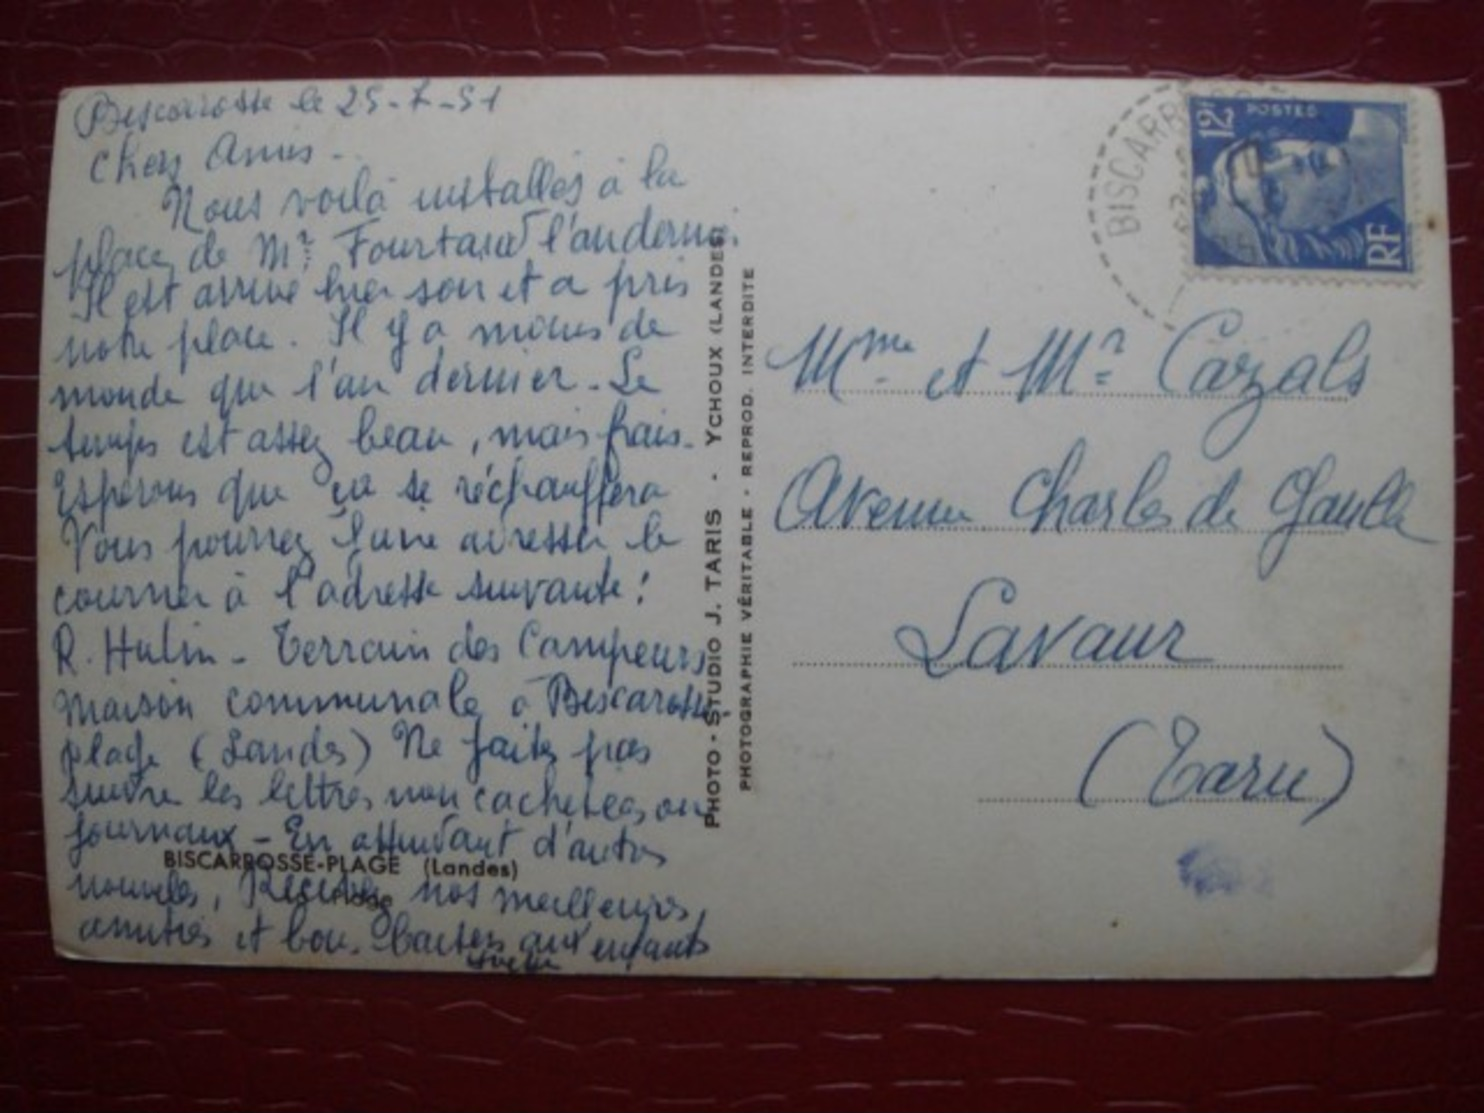 Biscarrosse le 25-7-51
Chers Amis -
Nous voilà installés à la
place de Mr. Fourtaud l'an dernier.
Il est arrivé hier soir et a pris
notre place. Il y a moins de
monde que l'an dernier - Le
temps est assez beau, mais frais.
Espérons que ça se réchauffera
Vous pourrez faire adresser le
courrier à l'adresse suivante :
R. Hulin - Terrain des Campeurs
Maison communale à Biscarosse
plage (Landes) Ne faites pas
suivre les lettres non cachetées ou
journaux - En attendant d'autres
nouvelles, Recevez nos meilleures
amitiés et bons baisers aux enfants
BISCARROSSE-PLAGE (Landes)
Plage
PHOTO - STUDIO J. TARIS - YCHOUX (LANDES)
PHOTOGRAPHIE VÉRITABLE - REPROD. INTERDITE
BISCARR
12F POSTES
RF
Mme et Mr Cazals
Avenue Charles de Gaulle
Lavaur
(Tarn)